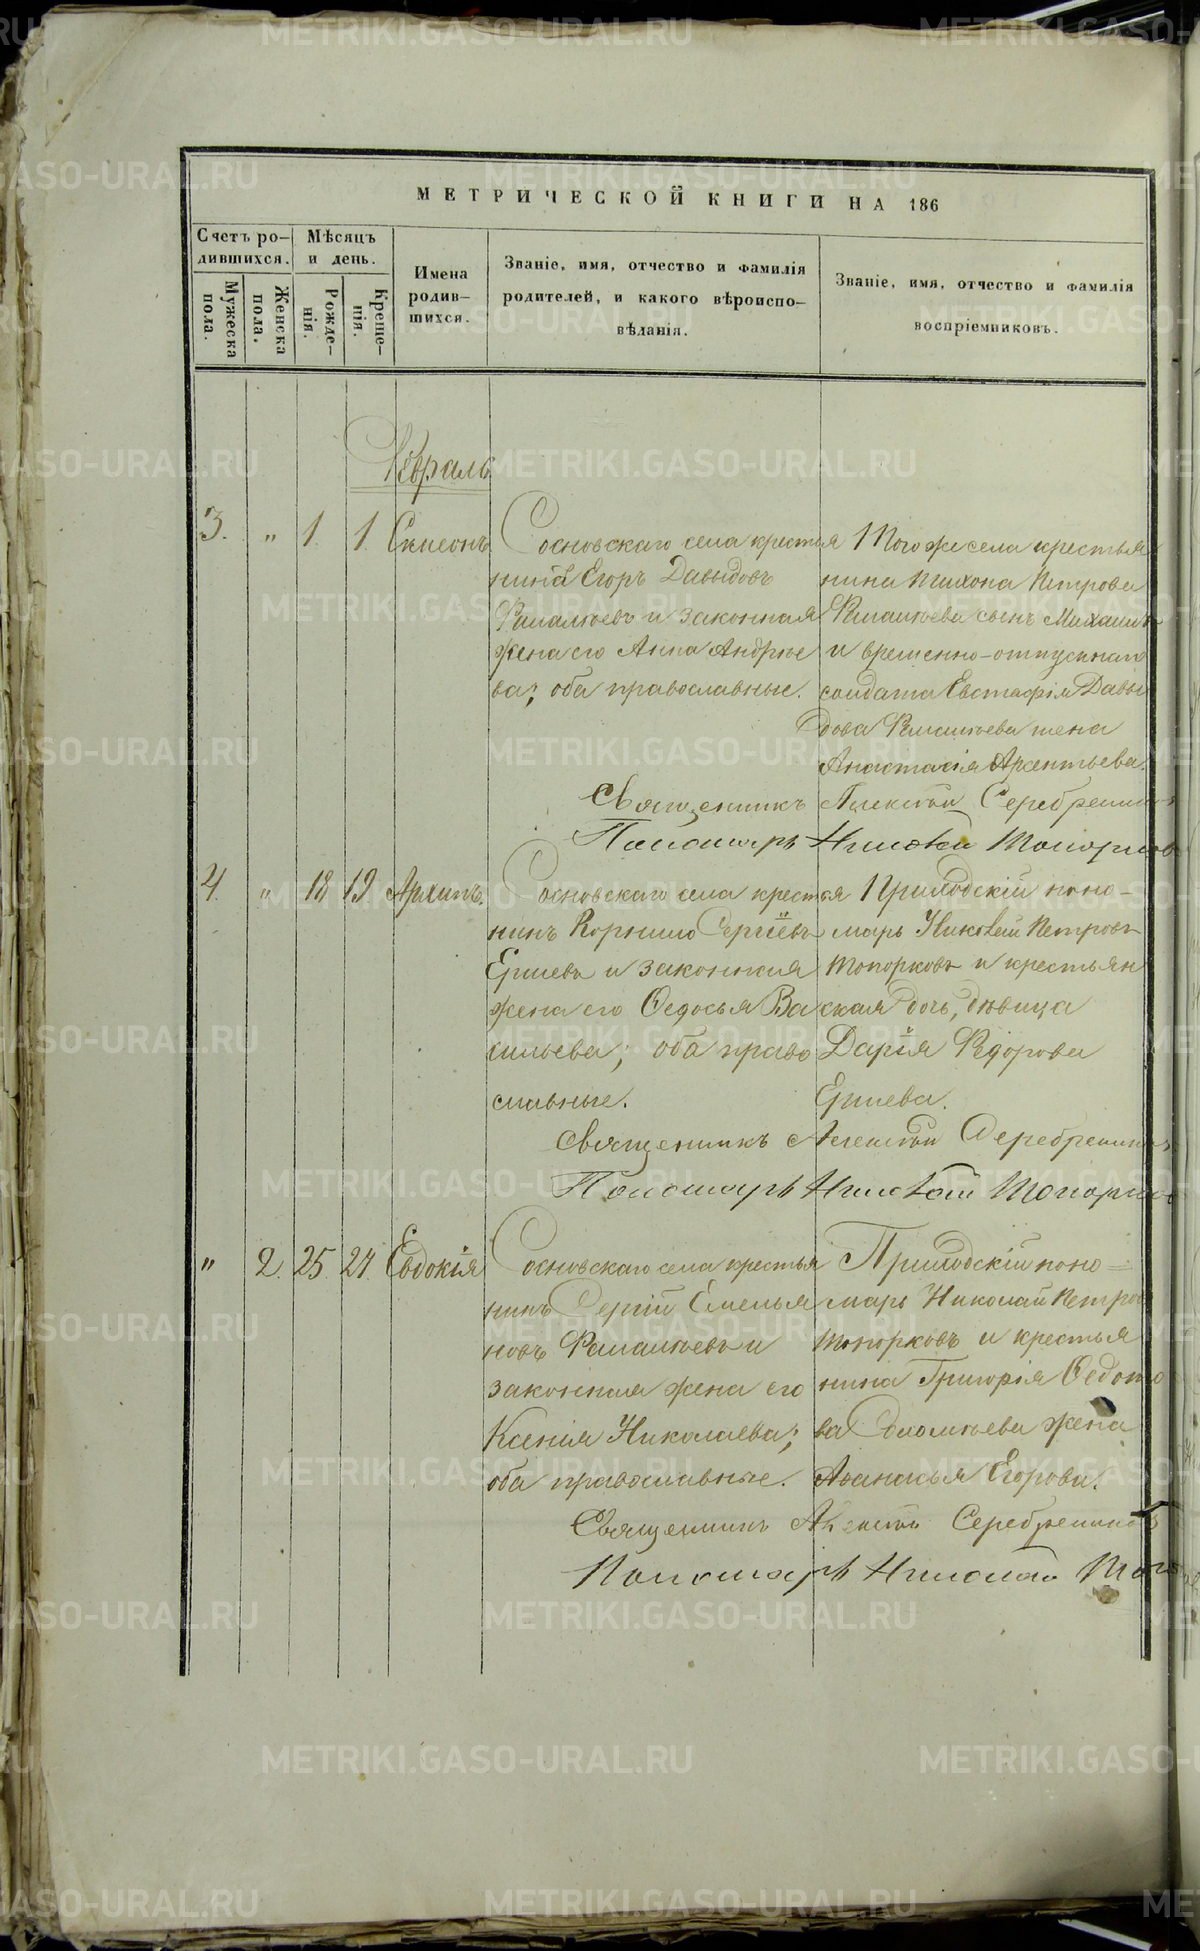 МЕТРИЧЕСКОЙ КНИГИ НА 186
Счетъ ро-
дившихся.
Мужеска пола.
Женска пола.
Мѣсяцъ
и день.
Рожде-
нія.
Креще-
нія.
Имена
родив-
шихся.
Званіе, имя, отчество и фамилія
родителей, и какого вѣроиспо-
вѣданія.
Званіе, имя, отчество и фамилія
воспріемниковъ.
Февраль
3. " 1. 1. Симеонъ
Сосновскаго села крестья
нинъ Егоръ Давыдовъ
и законная
жена его Анна Андрее
ва; оба православные.
Того же села крестья
нина Тихона Петрова
сынъ Михаилъ
и временно-отпускнаго
солдата Евстафія Давы
дова жена
Анастасія Арсентьева.
Священникъ Алексѣй Серебренниковъ
Пономарь Николай Топорковъ
4. " 18 19 Архипъ.
Сосновскаго села крестья
нинъ Корнило Сергіевъ
Ершевъ и законная
жена его Ѳедосья Ва
сильева; оба право
славные.
Приходскій поно-
марь Николай Петровъ
Топорковъ и крестьян
ская дочь, дѣвица
Дарія Ѳедорова
Ершева.
Священникъ Алексѣй Серебренниковъ
Пономарь Николай Топорковъ
" 2. 25. 27. Евдокія
Сосновскаго села крестья
нинъ Сергій Емелья
новъ и
законная жена его
Ксенія Николаева;
оба православные.
Приходскій поно=
марь Николай Петров
Топорковъ и крестья
нина Григорія Ѳедото
ва жена
Аѳанасья Егорова.
Священникъ Алексѣй Серебренниковъ
Пономарь Николай Топо
METRIKI.GASO-URAL.RU